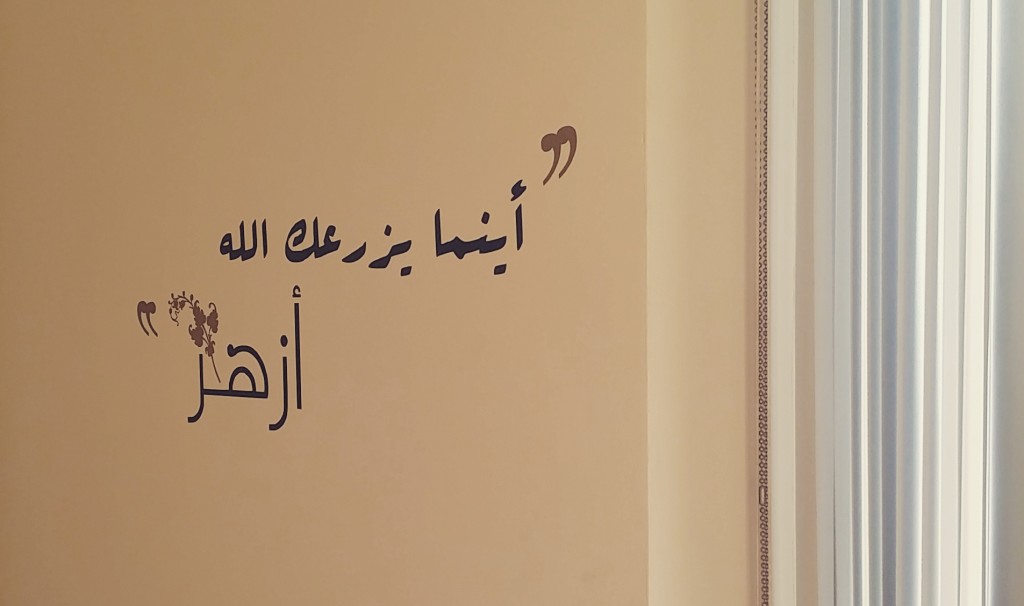 "أينما يزرعك الله
أزهر"